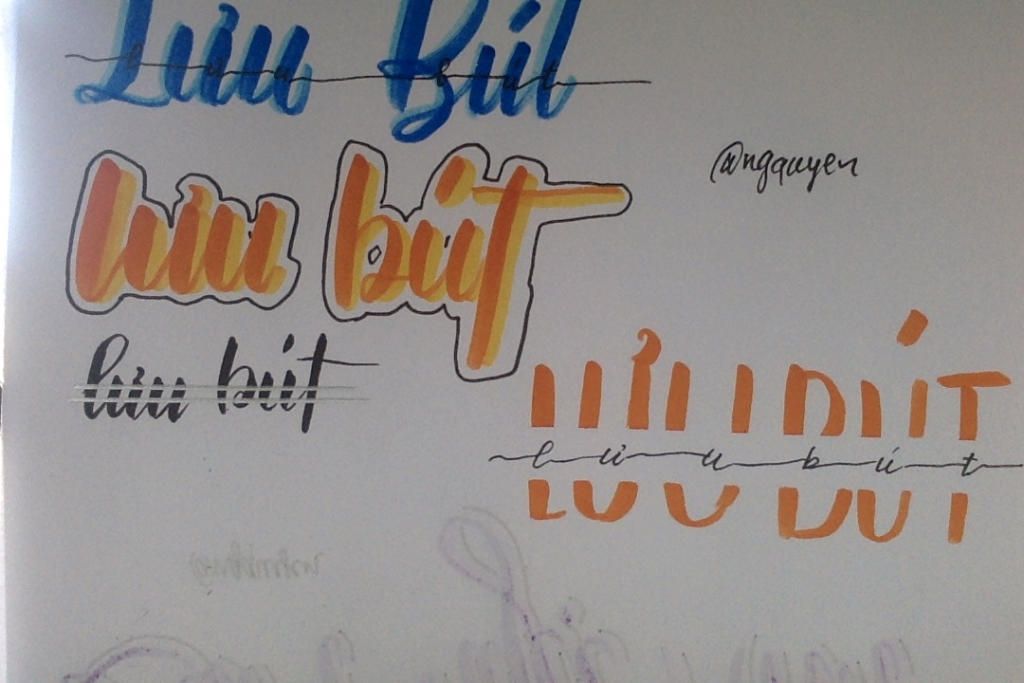 Lưu Bút
lưu bút
@ngquyen
lưu bút
lưu bút
LƯU BÚT
lưu bút